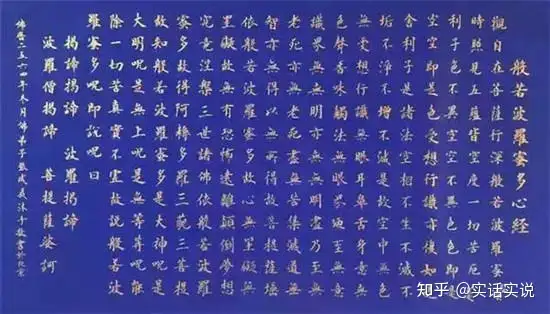 般若波羅蜜多心經
觀自在菩薩行深般若波羅蜜多
時照見五蘊皆空度一切苦厄舍
利子色不異空空不異色色即是
空空即是色受想行識亦復如是
舍利子是諸法空相不生不滅不
垢不淨不增不減是故空中無色
無受想行識無眼耳鼻舌身意無
色聲香味觸法無眼界乃至無意
識界無無明亦無無明盡乃至無
老死亦無老死盡無苦集滅道無
智亦無得以無所得故菩提薩埵
依般若波羅蜜多故心無罣礙無
罣礙故無有恐怖遠離顛倒夢想
究竟涅槃三世諸佛依般若波羅
蜜多故得阿耨多羅三藐三菩提
故知般若波羅蜜多是大神呪是
大明呪是無上呪是無等等呪能
除一切苦真實不虛故說般若波
羅蜜多呪即說呪曰
揭諦揭諦 波羅揭諦
波羅僧揭諦 菩提薩婆訶
佛曆二五六四年冬月佛弟子
知乎 @实话实说